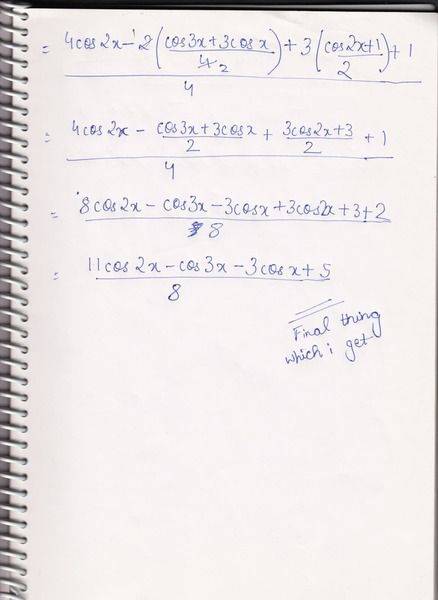 = (4cos2x - 2((cos3x+3cosx)/4 2) + 3((cos2x+1)/2) + 1)/4
= (4cos2x - (cos3x+3cosx)/2 + (3cos2x+3)/2 + 1)/4
= (8cos2x - cos3x - 3cosx + 3cos2x + 3 + 2)/8
= (11cos2x - cos3x - 3cosx + 5)/8
Final thing
which i get